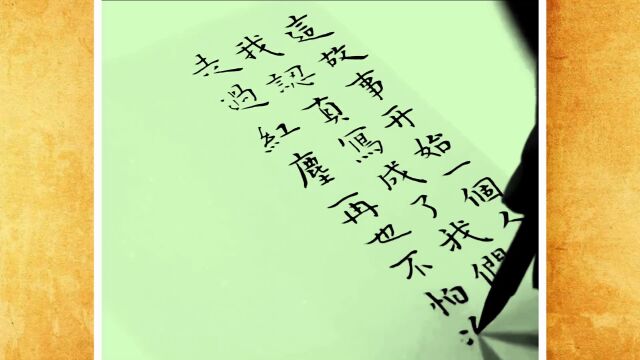 這故事开始一個人
我認真寫成了我們
走過紅塵再也不怕